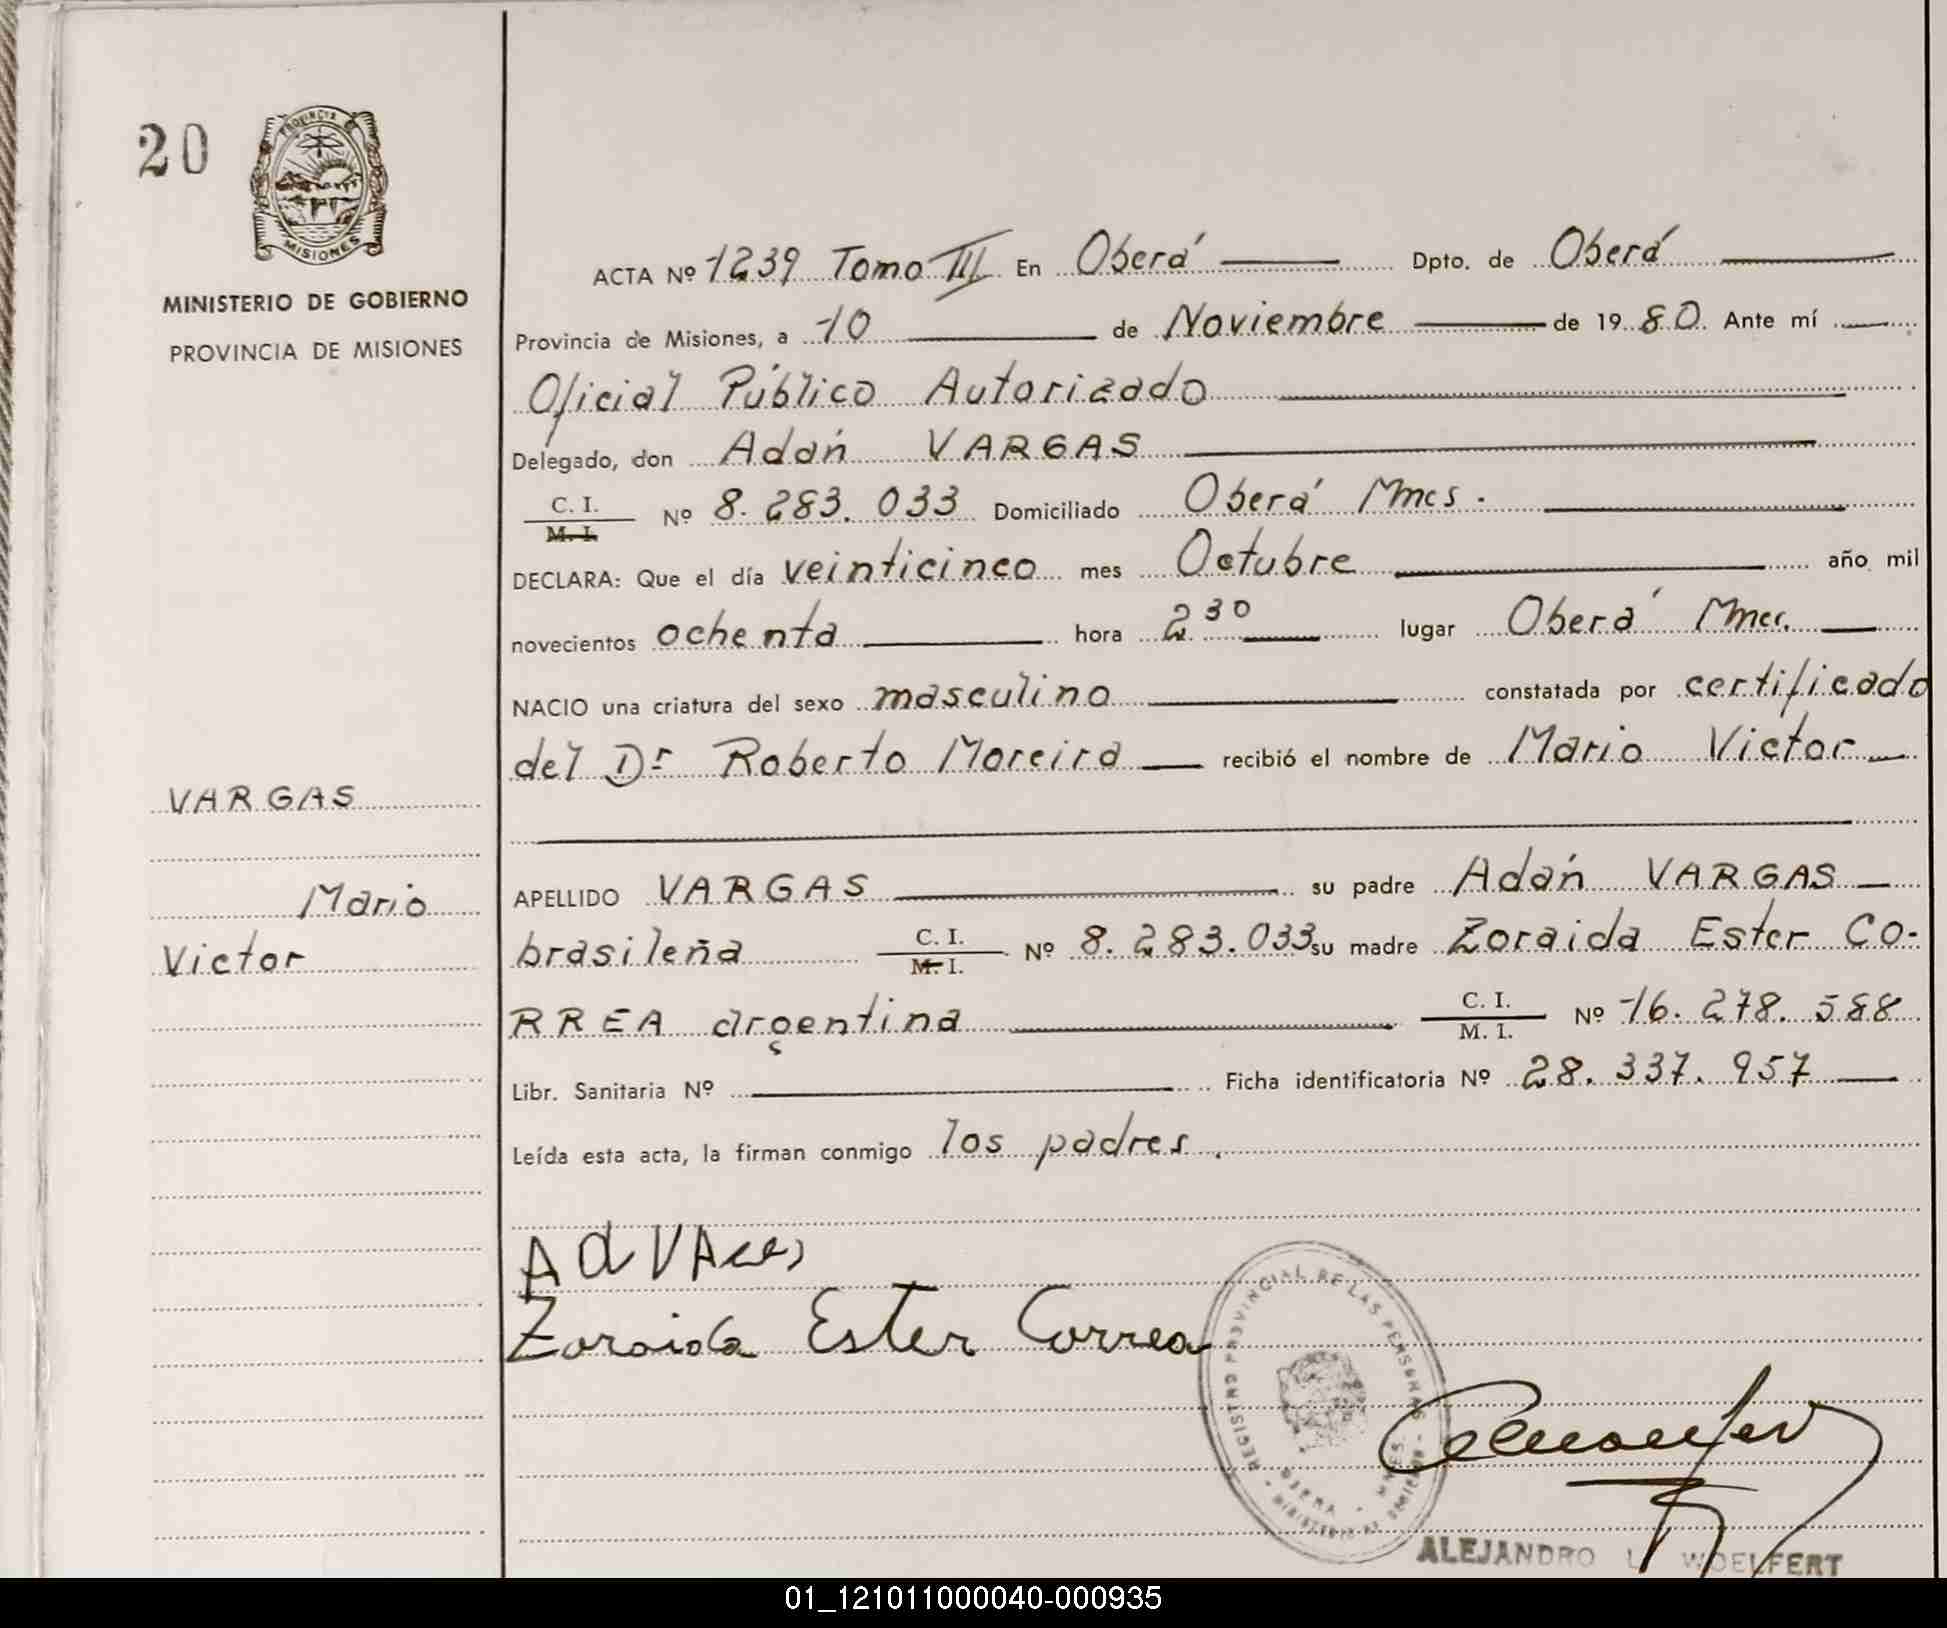 20
PROVINCIA DE
MISIONES
MINISTERIO DE GOBIERNO
PROVINCIA DE MISIONES
VARGAS
Mario
Victor
ACTA Nº 1239 Tomo III En Oberá Dpto. de Oberá
Provincia de Misiones, a 10 de Noviembre de 1980. Ante mí
Oficial Público Autorizado
Delegado, don Adán VARGAS
C. I.
M. I. Nº 8.283.033 Domiciliado Oberá Mnes.
DECLARA: Que el día veinticinco mes Octubre año mil
novecientos ochenta hora 2 30 lugar Oberá Mnes.
NACIO una criatura del sexo masculino constatada por certificado
del Dr Roberto Moreira recibió el nombre de Mario Victor
APELLIDO VARGAS su padre Adán VARGAS
brasileña C. I. M. I. Nº 8.283.033 su madre Zoraida Ester CO-
RREA argentina C. I. M. I. Nº 16.278.588
Libr. Sanitaria Nº Ficha identificatoria Nº 28.337.957
Leída esta acta, la firman conmigo los padres.
Zoraida Ester Correa
REGISTRO PROVINCIAL DE LAS PERSONAS
OBERA MNES.
ALEJANDRO L. WOELFERT
01_121011000040-000935